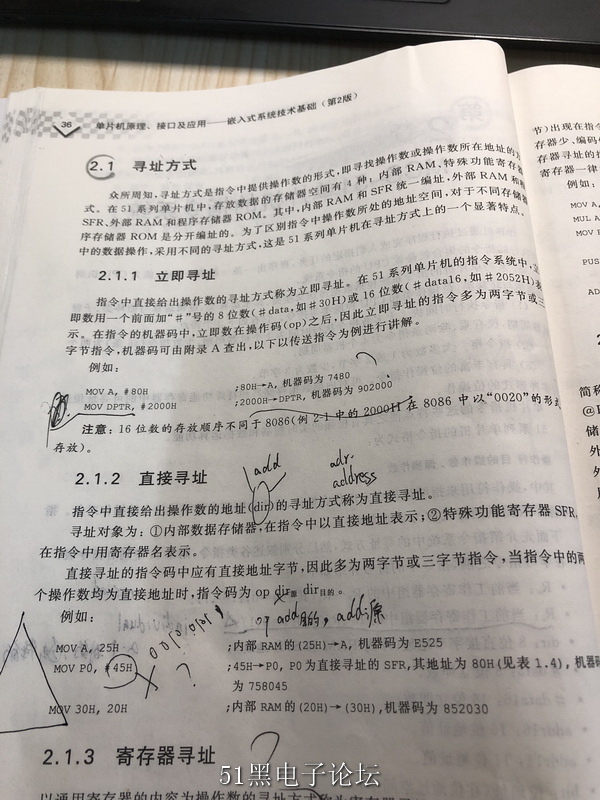 36 单片机原理、接口及应用——嵌入式系统技术基础(第2版)
2.1 寻址方式
众所周知,寻址方式是指令中提供操作数的形式,即寻找操作数或操作数所在地址的方
式。在51系列单片机中,存放数据的存储器空间有4种:内部RAM、特殊功能寄存器
SFR、外部RAM和程序存储器ROM。其中,内部RAM和SFR统一编址,外部RAM和程
序存储器ROM是分开编址的。为了区别指令中操作数所处的地址空间,对于不同存储器
中的数据操作,采用不同的寻址方式,这是51系列单片机在寻址方式上的一个显著特点。
2.1.1 立即寻址
指令中直接给出操作数的寻址方式称为立即寻址。在51系列单片机的指令系统中,立
即数用一个前面加“#”号的8位数(#data,如#30H)或16位数(#data16,如#2052H)表
示。在指令的机器码中,立即数在操作码(op)之后,因此立即寻址的指令多为两字节或三
字节指令,机器码可由附录A查出,以下以传送指令为例进行讲解。
例如:
MOV A, #80H ;80H→A, 机器码为 7480
MOV DPTR, #2000H ;2000H→DPTR, 机器码为 902000
注意:16位数的存放顺序不同于8086(例2-1中的2000H在8086中以“0020”的形式
存放)。
add
adr.
address
2.1.2 直接寻址
指令中直接给出操作数的地址(dir)的寻址方式称为直接寻址。
寻址对象为:①内部数据存储器,在指令中以直接地址表示;②特殊功能寄存器SFR,
在指令中用寄存器名表示。
直接寻址的指令码中应有直接地址字节,因此多为两字节或三字节指令,当指令中的两
个操作数均为直接地址时,指令码为 op dir源 dir目的。
op add目的, add源
例如:
MOV A, 25H ;内部 RAM 的(25H)→A, 机器码为 E525
MOV P0, #45H ;45H→P0, P0为直接寻址的SFR,其地址为80H(见表1.4), 机器码
为 758045
X ?
MOV 30H, 20H ;内部 RAM 的(20H)→(30H),机器码为 852030
2.1.3 寄存器寻址
?
以通用寄存器的内容为操作数的寻址方式称为
51黑电子论坛
节)出现在指令
存器少、编码
存器寻址的指
寄存器一律
例如:
MOV A
MUL A
MOV
PUS
AD
2
简称
@
储
外
外